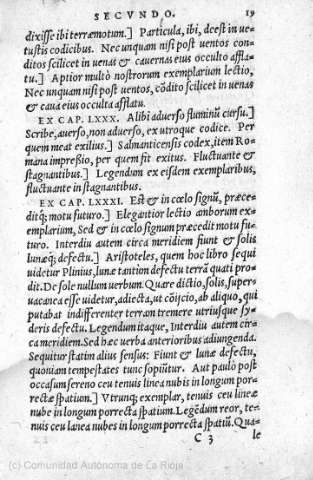 SECVNDO. 19
dixisse ibi terræmotum.] Particula, ibi, deest in ue-
tustis codicibus. Nec unquam nisi post uentos con-
ditos scilicet in uenas & cauernas eius occulto af-
flatu.] Aptior multò nostrorum exemplarium lectio,
Nec unquam nisi post uentos, cōdito scilicet in uenas
& caua eius occulta afflatu.
EX CAP. LXXX. Alibi aduerso fluminū cursu.]
Scribe, auerso, non aduerso, ex utroque codice. Per
quem meat exilius.] Salmanticensis codex, item Ro-
mana impreßio, per quem fit exitus. Fluctuante &
stagnantibus.] Legendum ex eisdem exemplaribus,
fluctuante in stagnantibus.
EX CAP. LXXXI. Est & in cœlo signū, præce-
ditq; motu futuro.] Elegantior lectio amborum ex-
emplarium, Sed & in cœlo signum præcedit motu fu-
turo. Interdiu autem circa meridiem fiunt & solis
lunæq; defectu.] Aristoteles, quem hoc libro sequi
uidetur Plinius, lunæ tantùm defectu terrā quati pro-
dit. De sole nullum uerbum. Quare dictio, solis, super-
uacanea esse uidetur, adiecta, ut cōijcio, ab aliquo, qui
putabat indifferenter terram tremere utriusque sy-
deris defectu. Legendum itaque, Interdiu autem cir-
ca meridiem. Sed hæc uerba anterioribus adiungenda.
Sequitur statim alius sensus: Fiunt & lunæ defectu,
quoniam tempestates tunc sopiūtur. Aut paulò post
occasum sereno ceu tenuis linea nubis in longum por-
rectæ spatium.] Vtrunq; exemplar, tenuis ceu lineæ
nube in longum porrecta spatium. Legēdum reor, te-
nuis ceu lanea nubes in longum porrecta spatiū. Qua-
C 3 le
(c) Comunidad Autónoma de La Rioja